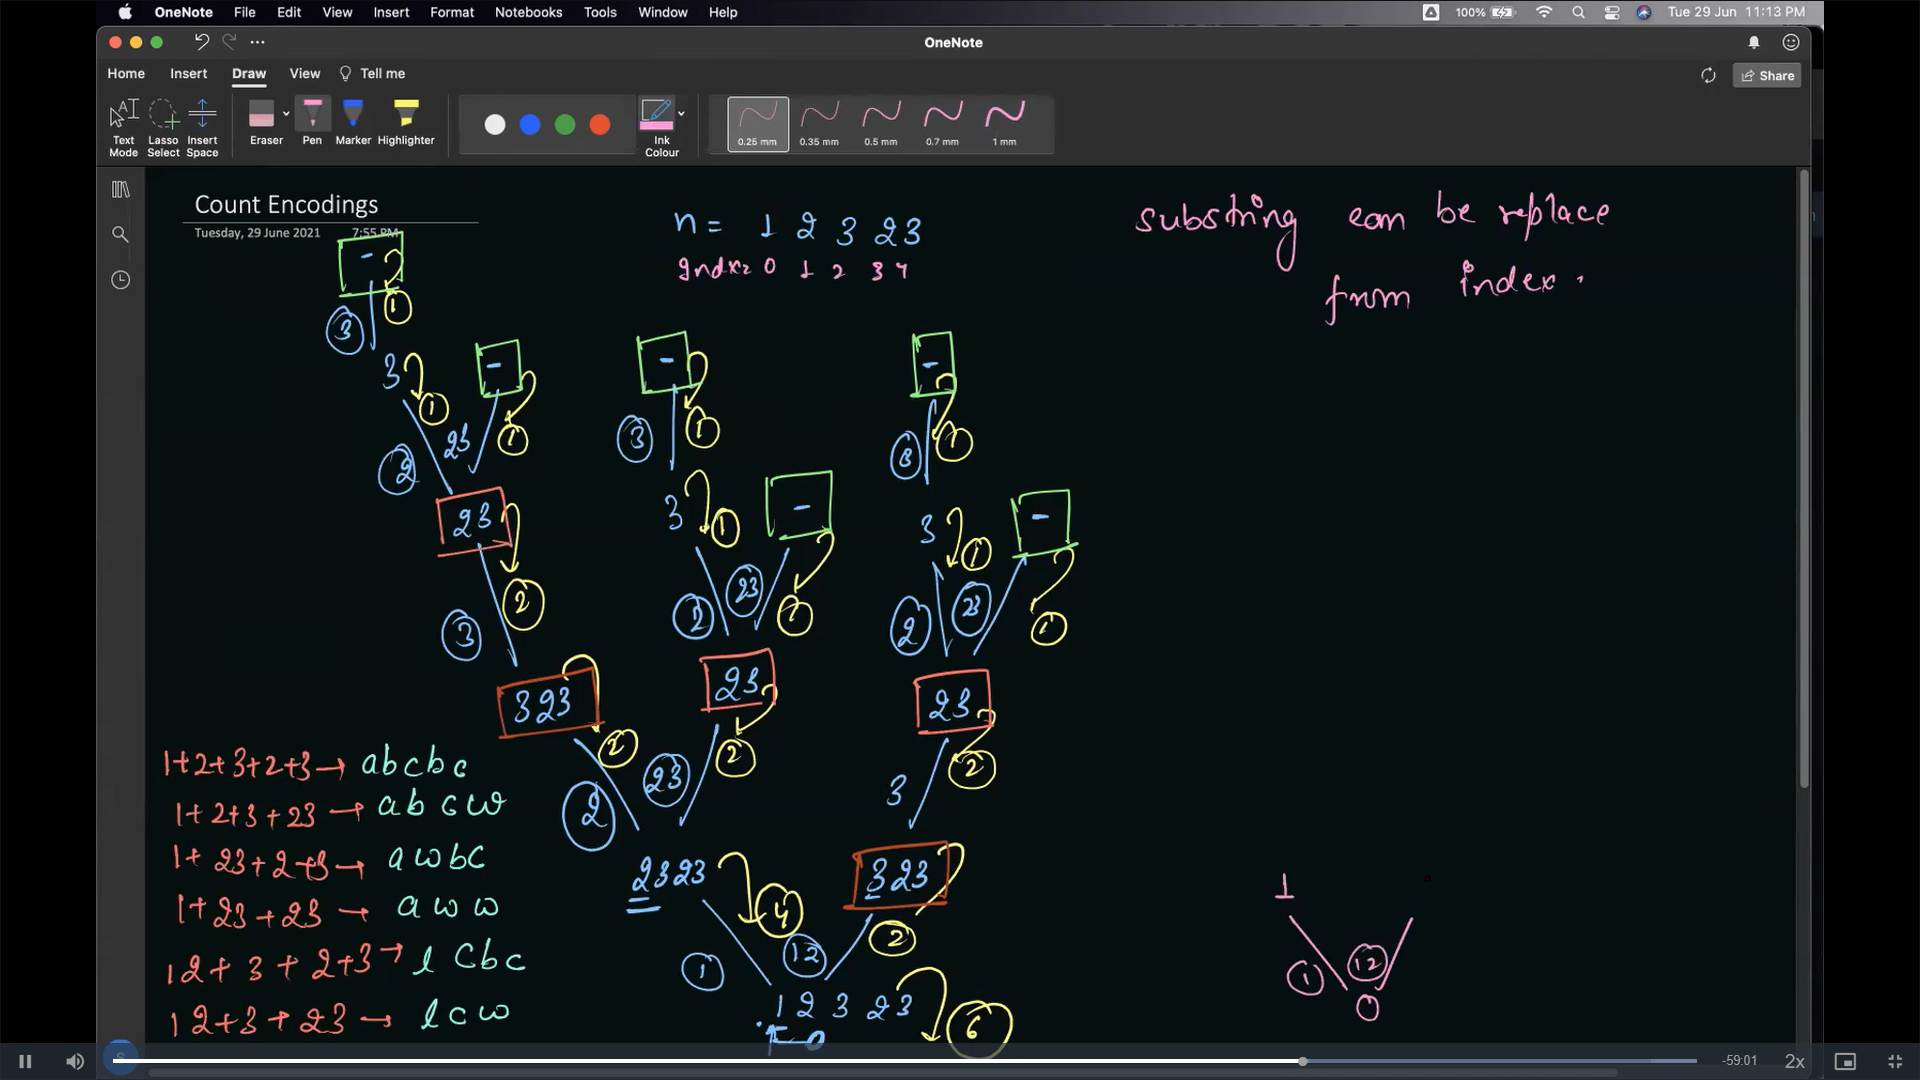 OneNote File Edit View Insert Format Notebooks Tools Window Help
100% Tue 29 Jun 11:13 PM
OneNote
Home Insert Draw View Tell me
Share
Text Mode
Lasso Select
Insert Space
Eraser
Pen
Marker
Highlighter
Ink Colour
0.25 mm
0.35 mm
0.5 mm
0.7 mm
1 mm
Count Encodings
Tuesday, 29 June 2021 7:55 PM
n = 1 2 3 2 3
Index= 0 1 2 3 4
substring can be replace
from index .
-
1
3
3
1
-
1
2
23
23
2
3
323
2
2
-
1
3
3
1
-
1
2
23
23
2
23
2323
4
-
1
3
3
1
-
1
2
23
23
2
3
323
2
1
12
1 2 3 2 3
6
0
1+2+3+2+3 → abcbc
1+2+3+23 → abcw
1+23+2+3 → awbc
1+23+23 → aww
12+3+2+3 → lcbc
12+3+23 → lcw
1
1
12
0
-59:01
2x